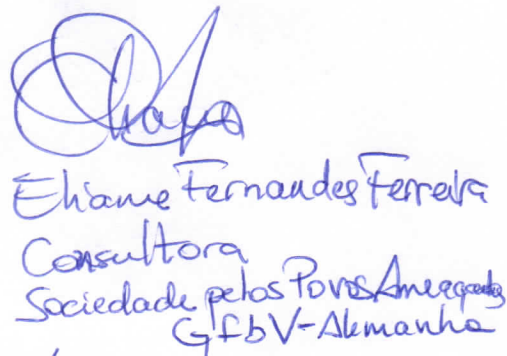 Eliane Fernandes Ferreira
Consultora
Sociedade pelos Povos Ameaçados
GfbV-Alemanha